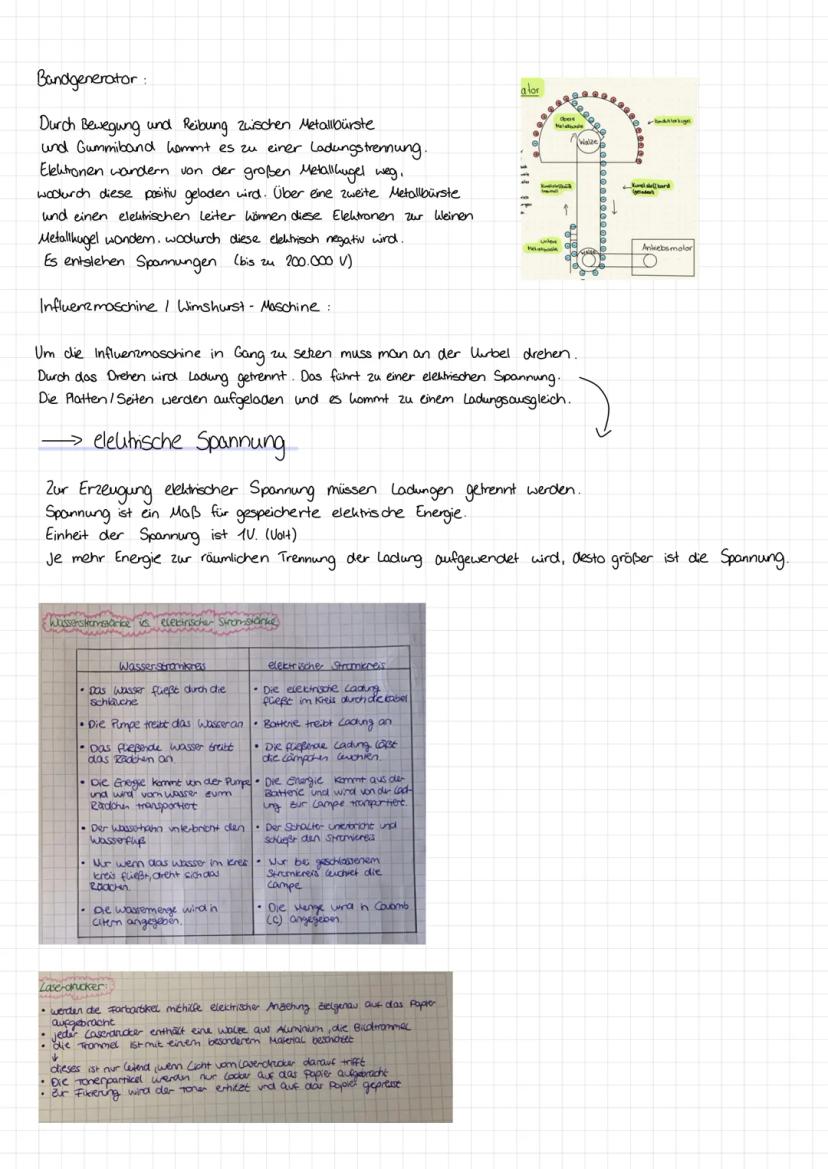 Bandgenerator :
Durch Bewegung und Reibung zwischen Metallbürste
und Gummiband kommt es zu einer Ladungstrennung.
Elektronen wandern von der großen Metallkugel weg,
wodurch diese positiv geladen wird. Über eine zweite Metallbürste
und einen elektrischen Leiter können diese Elektronen zur kleinen
Metallkugel wandern. wodurch diese elektrisch negativ wird.
Es entstehen Spannungen (bis zu 200.000 V)
ator
obere
Walze
Konduktorkugel
Kunststoffband
(geladen)
untere
Walze
Antriebsmotor
Influenzmaschine / Wimshurst - Maschine :
Um die Influenzmaschine in Gang zu setzen muss man an der Kurbel drehen.
Durch das Drehen wird Ladung getrennt. Das führt zu einer elektrischen Spannung.
Die Platten/Seiten werden aufgeladen und es kommt zu einem Ladungsausgleich.
→ elektrische Spannung
Zur Erzeugung elektrischer Spannung müssen Ladungen getrennt werden.
Spannung ist ein Maß für gespeicherte elektrische Energie.
Einheit der Spannung ist 1V. (Volt)
Je mehr Energie zur räumlichen Trennung der Ladung aufgewendet wird, desto größer ist die Spannung.
Wasserstromstärke is elektrischer Stromstärke
Wasserstromkreis
elektrischer Stromkreis
• Das Wasser fließt durch die
schläuche
• Die elektrische Ladung
fließt im Kreis durch die Kabel
• Die Pumpe treibt das Wasser an
• Batterie treibt Ladung an
• Das fließende Wasser treibt
das Rädchen an.
• Die fließende Ladung lässt
die Lämpchen leuchten.
• Die Energie kommt von der Pumpe
und wird vom Wasser zum
Rädchen transportiert
• Die Energie kommt aus der
Batterie und wird von der Lad-
ung zur Lampe transportiert.
• Der Wasserhahn unterbricht den
Wasserfluß
• Der Schalter unterbricht und
schließt den Stromkreis
• Nur wenn das Wasser im Kreis
kreis fließt, dreht sich das
Rädchen.
• Nur bei geschlossenem
Stromkreis leuchtet die
Lampe
• Die Wassermenge wird in
Litern angegeben.
• Die Menge wird in Coulomb
(C) angegeben.
Laserdrucker:
• werden die Farbartikel mithilfe elektrischer Anziehung zielgenau auf das Papier
aufgebracht
• jeder Laserdrucker enthält eine Walze aus Aluminium, die Bildtrommel
• die Trommel ist mit einem besonderem Material beschichtet
↓
dieses ist nur leitend, wenn Licht vom Laserdrucker darauf trifft
• Die Tonerpartikel werden nur locker auf das Papier aufgebracht
• Zur Fixierung wird der Toner erhitzt und auf das Papier gepresst